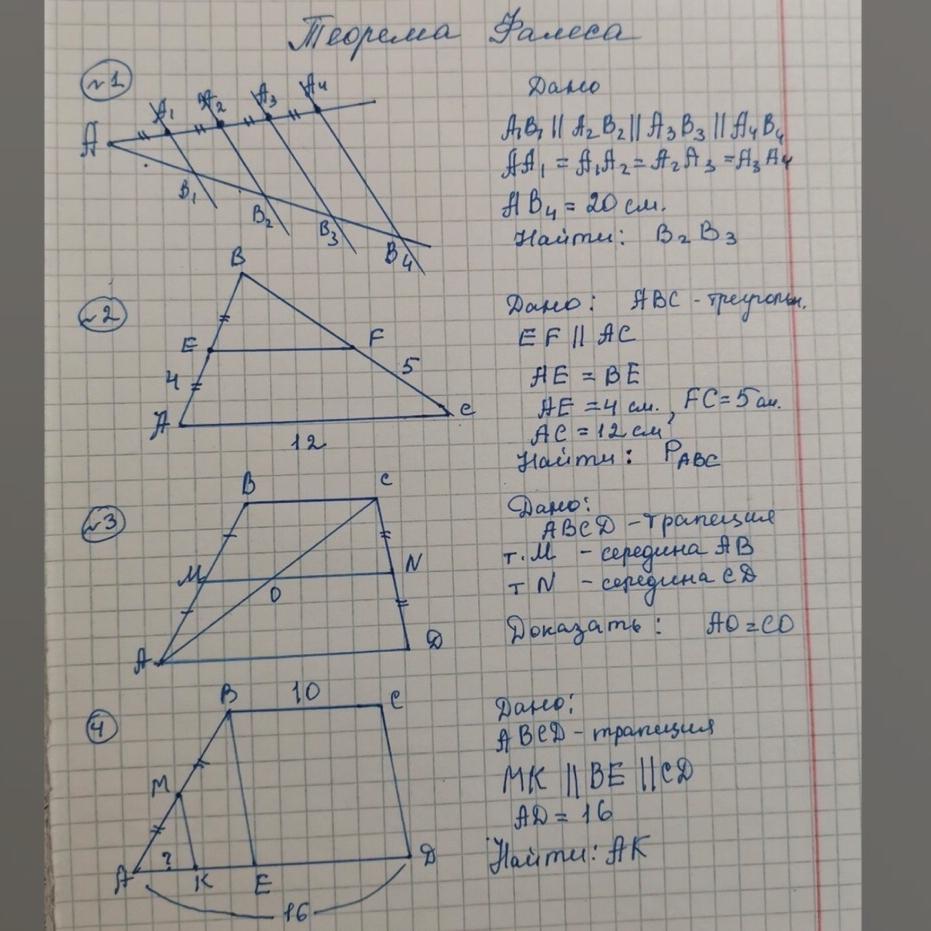 Теорема Фалеса
№1
A
A₁
A₂
A₃
A₄
B₁
B₂
B₃
B₄
Дано
A₁B₁ || A₂B₂ || A₃B₃ || A₄B₄
AA₁ = A₁A₂ = A₂A₃ = A₃A₄
AB₄ = 20 см.
Найти: B₂B₃
№2
B
E
F
4
5
A
C
12
Дано: ABC - треугольн.
EF || AC
AE = BE
AE = 4 см., FC = 5 см.
AC = 12 см
Найти: P_ABC
№3
B
C
M
N
O
A
D
Дано:
ABCD - трапеция
т. M - середина AB
т N - середина CD
Доказать: AO = CO
4
B
10
C
M
A
?
K
E
D
16
Дано:
ABCD - трапеция
MK || BE || CD
AD = 16
Найти: AK